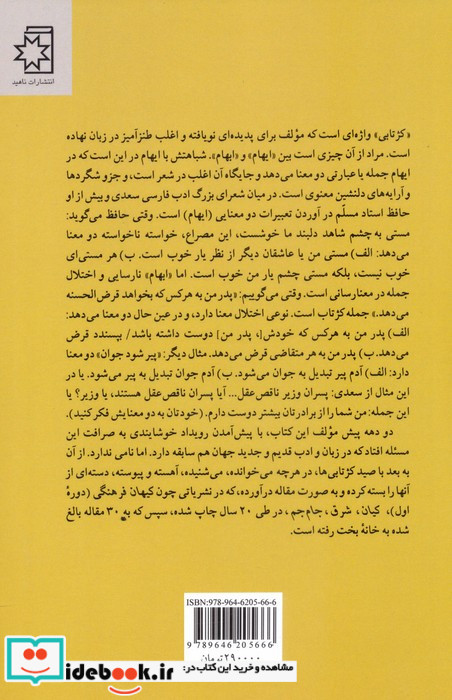 انتشارات ناهید
«کژتابی» واژه‌ای است که مؤلف برای پدیده‌ای نویافته و اغلب طنزآمیز در زبان نهاده
است. مراد از آن چیزی است بین «ایهام» و «ابهام». شباهتش با ایهام در این است که در
ایهام جمله یا عبارتی دو معنا می‌دهد و جایگاه آن اغلب در شعر است، و جزو شگردها
و آرایه‌های دلنشین معنوی است. در میان شعرای بزرگ ادب فارسی سعدی و بیش از او
حافظ استاد مسلّم در آوردن تعبیرات دو معنایی (ایهام) است. وقتی حافظ می‌گوید:
مستی به چشم شاهد دلبند ما خوشست، این مصراع، خواسته ناخواسته دو معنا
می‌دهد: الف) مستی من یا عاشقان دیگر از نظر یار خوب است. ب) هر مستی‌ای
خوب نیست، بلکه مستی چشم یار من خوب است. اما «ابهام» نارسایی و اختلال
جمله در معنارسانی است. وقتی می‌گوییم: «پدر من به هرکس که بخواهد قرض‌الحسنه
می‌دهد.» جمله کژتاب است. نوعی اختلال معنا دارد، و در عین حال دو معنا می‌دهد:
الف) پدر من به هرکس که خودش [، پدر من] دوست داشته باشد/ بپسندد قرض
می‌دهد. ب) پدر من به هر متقاضی قرض می‌دهد. مثال دیگر: «پیر شود جوان» دو معنا
دارد: الف) آدم پیر تبدیل به جوان می‌شود. ب) آدم جوان تبدیل به پیر می‌شود. یا در
این مثال از سعدی: پسران وزیر ناقص‌عقل... آیا پسران ناقص‌عقل هستند، یا وزیر؟ یا
این جمله: من شما را از برادرتان بیشتر دوست دارم. (خودتان به دو معنایش فکر کنید).
دو دهه پیش مؤلف این کتاب، با پیش‌آمدن رویداد خوشایندی به صرافت این
مسئله افتاد که در زبان و ادب قدیم و جدید جهان هم سابقه دارد. اما نامی ندارد. از آن
به بعد با صید کژتابی‌ها، در هرچه می‌خوانده، می‌شنیده، آهسته و پیوسته، دسته‌ای از
آنها را بسته کرده و به صورت مقاله درآورده، که در نشریاتی چون کیهان فرهنگی (دورهٔ
اول)، کیان، شرق، جام‌جم، در طی ۲۰ سال چاپ شده، سپس که به ۳۰ مقاله بالغ
شده به خانهٔ بخت رفته است.
ISBN:978-964-6205-66-6
9 789646 205666
۲۹۰۰۰۰ تومان
مشاهده و خرید این کتاب در:
idebook.ir